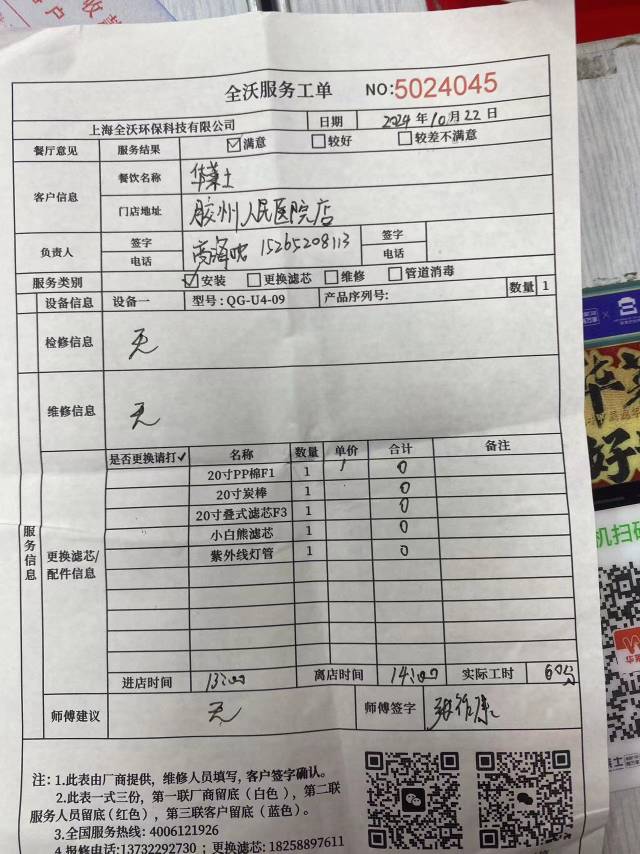 全沃服务工单 NO:5024045
上海全沃环保科技有限公司 日期 2024年10月22日
餐厅意见 服务结果 ☑满意 ☐较好 ☐较差不满意
客户信息 餐饮名称 华莱士
门店地址 胶州人民医院店
负责人 签字 电话 15265208113 签字 电话
服务类别 ☑安装 ☐更换滤芯 ☐维修 ☐管道消毒
设备信息 设备一 型号:QG-U4-09 产品序列号: 数量 1
检修信息 无
维修信息 无
服务信息
更换滤芯/配件信息
是否更换请打✓ 名称 数量 单价 合计 备注
20寸PP棉F1 1 0
20寸炭棒 1 0
20寸叠式滤芯F3 1 0
小白熊滤芯 1 0
紫外线灯管 1 0
进店时间 13:00 离店时间 14:00 实际工时 60分
师傅建议 无 师傅签字
注: 1.此表由厂商提供, 维修人员填写, 客户签字确认。
2.此表一式三份, 第一联厂商留底(白色), 第二联
服务人员留底(红色), 第三联客户留底(蓝色)。
3.全国服务热线: 4006121926
4.报修电话:13732292730; 更换滤芯: 18258897611